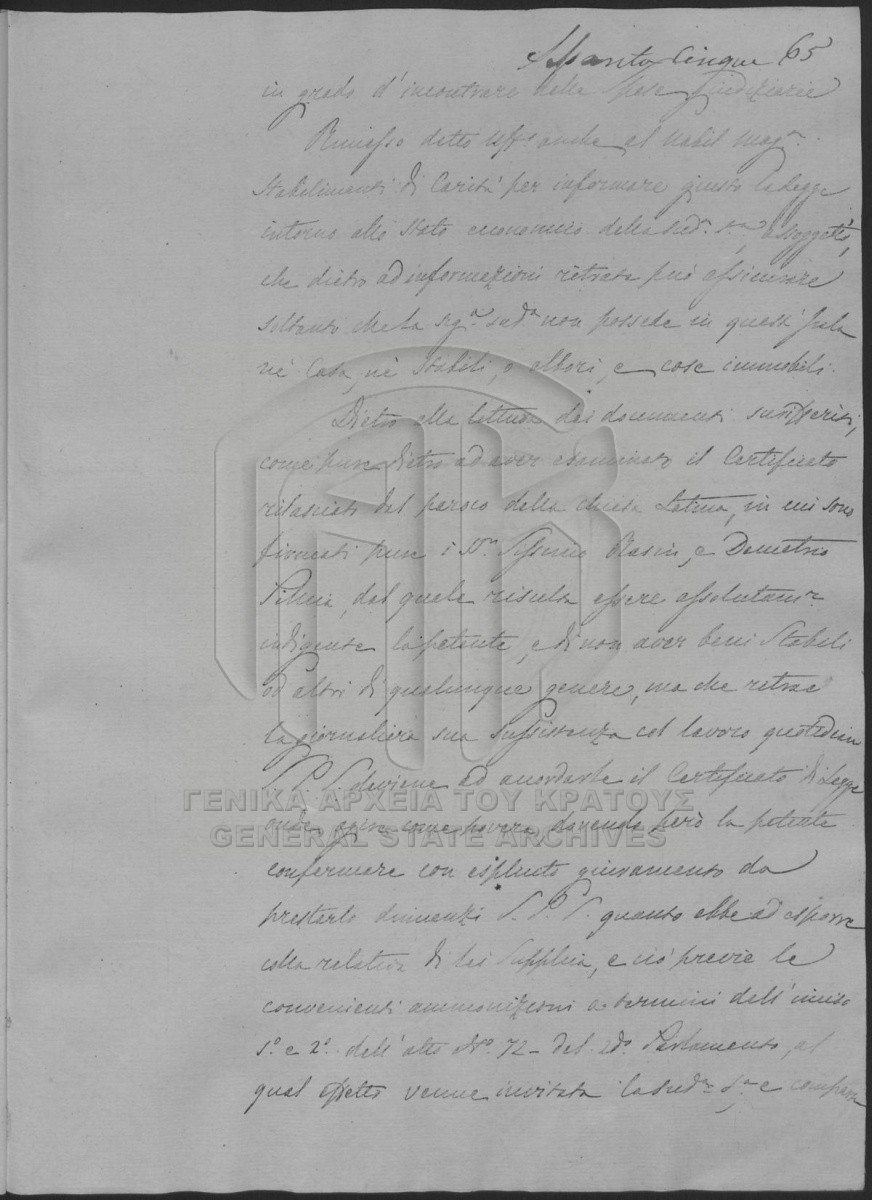 Sessanta Cinque 65
in grado d'incontrare delle spese giudiziarie
Rimesso detto anche al Nobil Mag.r
Stabilimenti di Carità per informare giusto la Legge
intorno allo Stato economico della sud.a S.a
che dietro ad informazioni ritratte può assicurare
soltanto che la Sig.a sud.a non possede in quest'Isola
nè Casa, nè Stabili, o albori, e cose immobili.
Dietro alla lettura dei documenti
come pure dietro ad aver esaminato il Certificato
rilasciato dal paroco della chiesa Latina, in cui sono
firmati pure i SS.ri e Demetrio
dal quale risulta essere assolutam.te
indigente la petente, e di non aver beni Stabili
od altri di qualunque genere, ma che retrae
la giornaliera sua sussistenza col lavoro quotidian
S. P. S. deviene ad accordarle il Certificato di Legge
onde agire come povera, dovendo però la petente
confermare con espluto giuramento da
prestarlo dinnanzi S. P. S. quanto ebbe ad esporre
colla relativa di lei Supplica, e ciò previe le
convenienti ammonizioni a termini dell'inciso
1.o e 2.o dell'atto No. 72 del 2do. Parlamento, al
qual effetto venne invitata la sud.a S.a e comparsa
ΓΕΝΙΚΑ ΑΡΧΕΙΑ ΤΟΥ ΚΡΑΤΟΥΣ
GENERAL STATE ARCHIVES